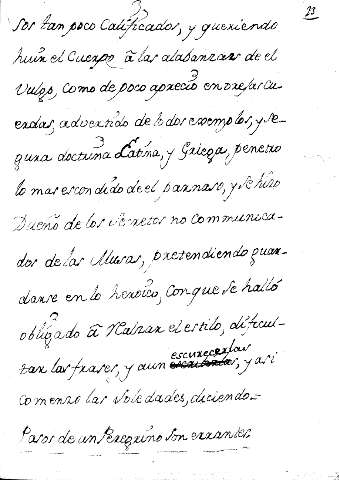 23
sor tan poco Calificados, y queriendo
huir el Cuerpo â las alabanzas de el
vulgo, como de poco aprecio entre las cu-
erdas, advertido de lo dos exemplos, y se-
gura doctrina Latina, y Griega, penetro
lo mas escondido de el parnaso, y se hizo
Dueño de los secretos no communica-
dos de las Musas, pretendiendo guar-
darse en lo heroico, Con que se halló
obligado â Realzar el estilo, dificul-
tar las frases, y aun escurecerlas, y asi
Comenzo las Soledades, diciendo-
Pasos de un Peregrino son errantes.